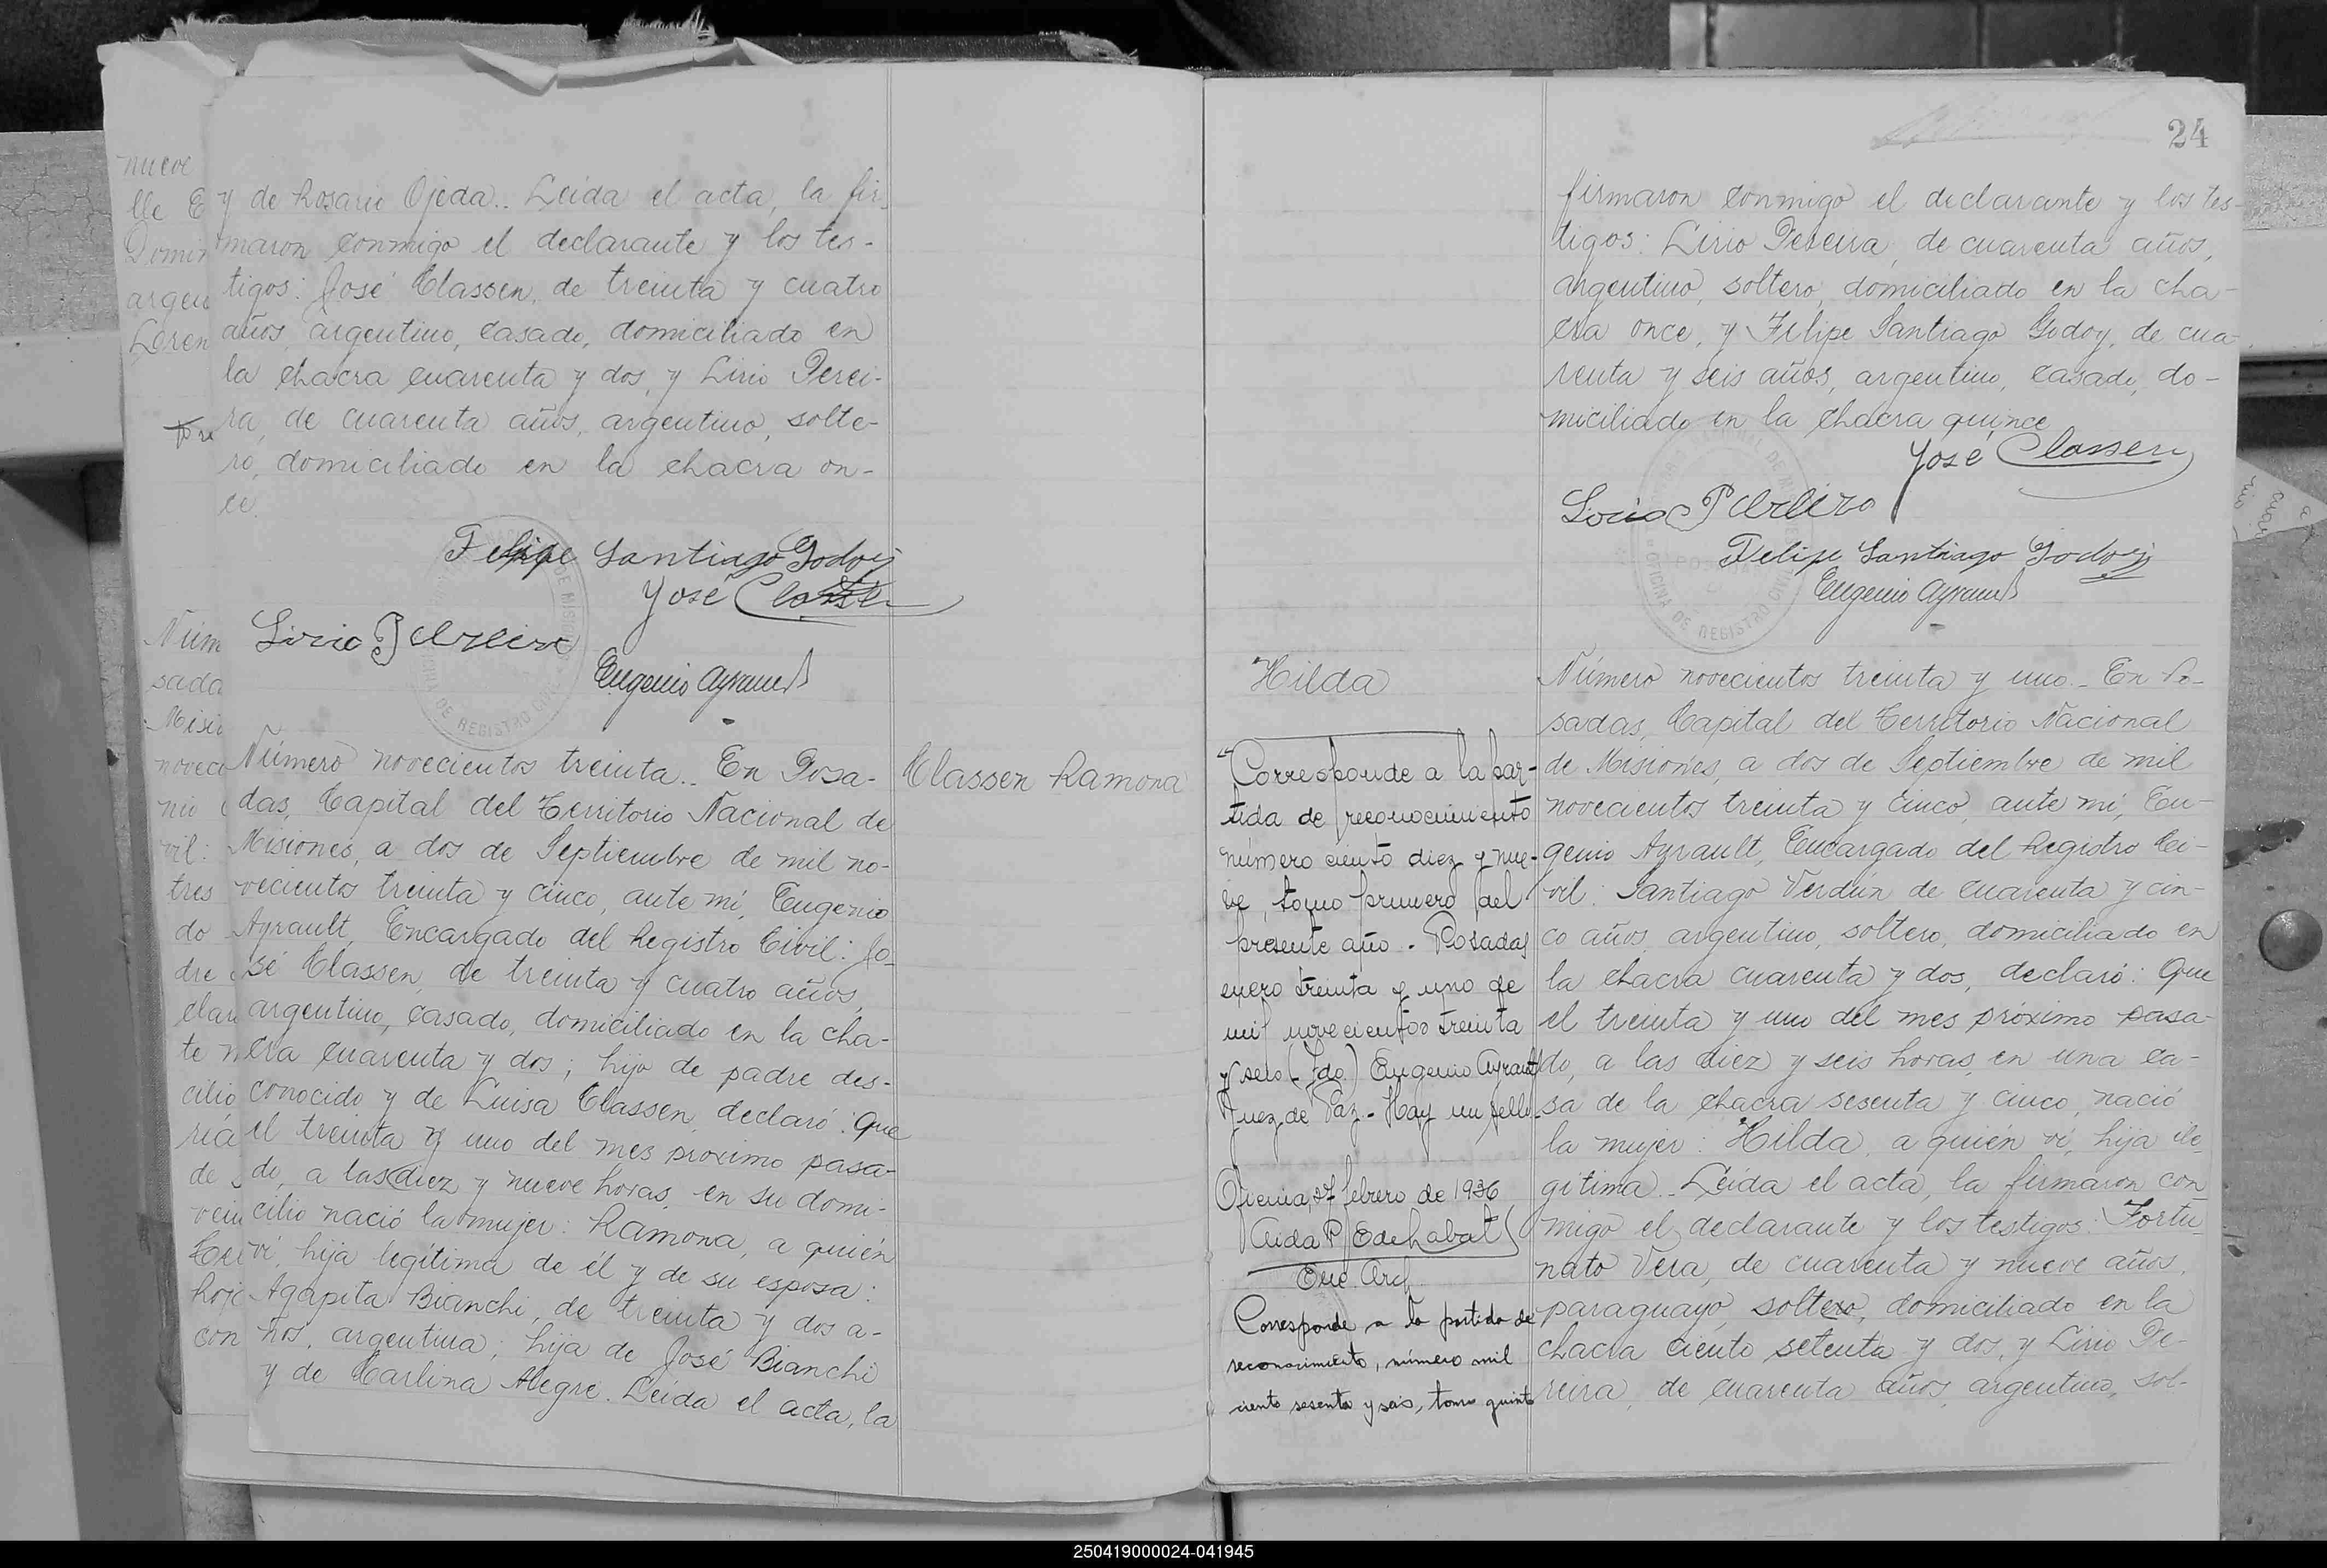 y de Rosario Ojeda.. Leída el acta, la fir-
maron conmigo el declarante y los tes-
tigos: José Classen, de treinta y cuatro
años, argentino, casado, domiciliado en
la chacra cuarenta y dos, y Lirio Perei-
ra, de cuarenta años, argentino, solte-
ro, domiciliado en la chacra on-
ce.
Felipe Santiago Godoy
José Classen
Lirio Pereira
Eugenio Ayrault
Número novecientos treinta.. En Posa-
das, Capital del Territorio Nacional de
Misiones, a dos de Septiembre de mil no-
vecientos treinta y cinco, ante mí, Eugenio
Ayrault, Encargado del Registro Civil: Jo-
sé Classen, de treinta y cuatro años,
argentino, casado, domiciliado en la cha-
cra cuarenta y dos; hijo de padre des-
conocido y de Luisa Classen, declaró: Que
el treinta y uno del mes próximo pasa-
do, a las diez y nueve horas, en su domi-
cilio nació la mujer: Ramona, a quién
ví, hija legítima de él y de su esposa:
Agapita Bianchi, de treinta y dos a-
ños, argentina; hija de José Bianchi
y de Carlina Alegre. Leída el acta, la
Classen Ramona
24
firmaron conmigo el declarante y los tes-
tigos: Lirio Pereira, de cuarenta años,
argentino, soltero, domiciliado en la cha-
cra once, y Felipe Santiago Godoy, de cua-
renta y seis años, argentino, casado, do-
miciliado en la chacra quince
José Classen
Lirio Pereira
Felipe Santiago Godoy
Eugenio Ayrault
Hilda
"Corresponde a la par-
tida de reconocimiento
número ciento diez y nue-
ve, tomo primero del
presente año. Posadas
enero treinta y uno de
mil novecientos treinta
y seis (Fdo.) Eugenio Ayrault
Juez de Paz - Hay un sello
Oficina, 27 febrero de 1936
Aida P. E de Labat
Enc. Arch.
Corresponde a la partida de
reconocimiento, número mil
ciento sesenta y seis, tomo quinto
Número novecientos treinta y uno.. En Po-
sadas, Capital del Territorio Nacional
de Misiones, a dos de Septiembre de mil
novecientos treinta y cinco, ante mí, Eu-
genio Ayrault, Encargado del Registro Ci-
vil: Santiago Verdún de cuarenta y cin-
co años, argentino, soltero, domiciliado en
la chacra cuarenta y dos, declaró: Que
el treinta y uno del mes próximo pasa-
do, a las diez y seis horas, en una ca-
sa de la chacra sesenta y cinco, nació
la mujer: Hilda, a quién ví, hija ile-
gítima.. Leída el acta, la firmaron con
migo el declarante y los testigos: Fortu-
nato Vera, de cuarenta y nueve años,
paraguayo, soltero, domiciliado en la
chacra ciento setenta y dos, y Lirio Pe-
reira, de cuarenta años, argentino, sol-
250419000024-041945